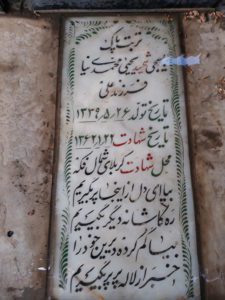 تربت پاک
بسیجی شهید یحیی محمدی نیا
فرزند علی
تاریخ تولد ۱۳۳۹٫۵٫۲۶
تاریخ شهادت ۱۳۶۲٫۱٫۲۲
محل شهادت کربلای شمال فکه
بیا ای دل از اینجا پر بگیریم
ره کاشانه دیگر بگیریم
بیا گم کرده دیرین خود را
خبر از لاله پرپر بگیریم